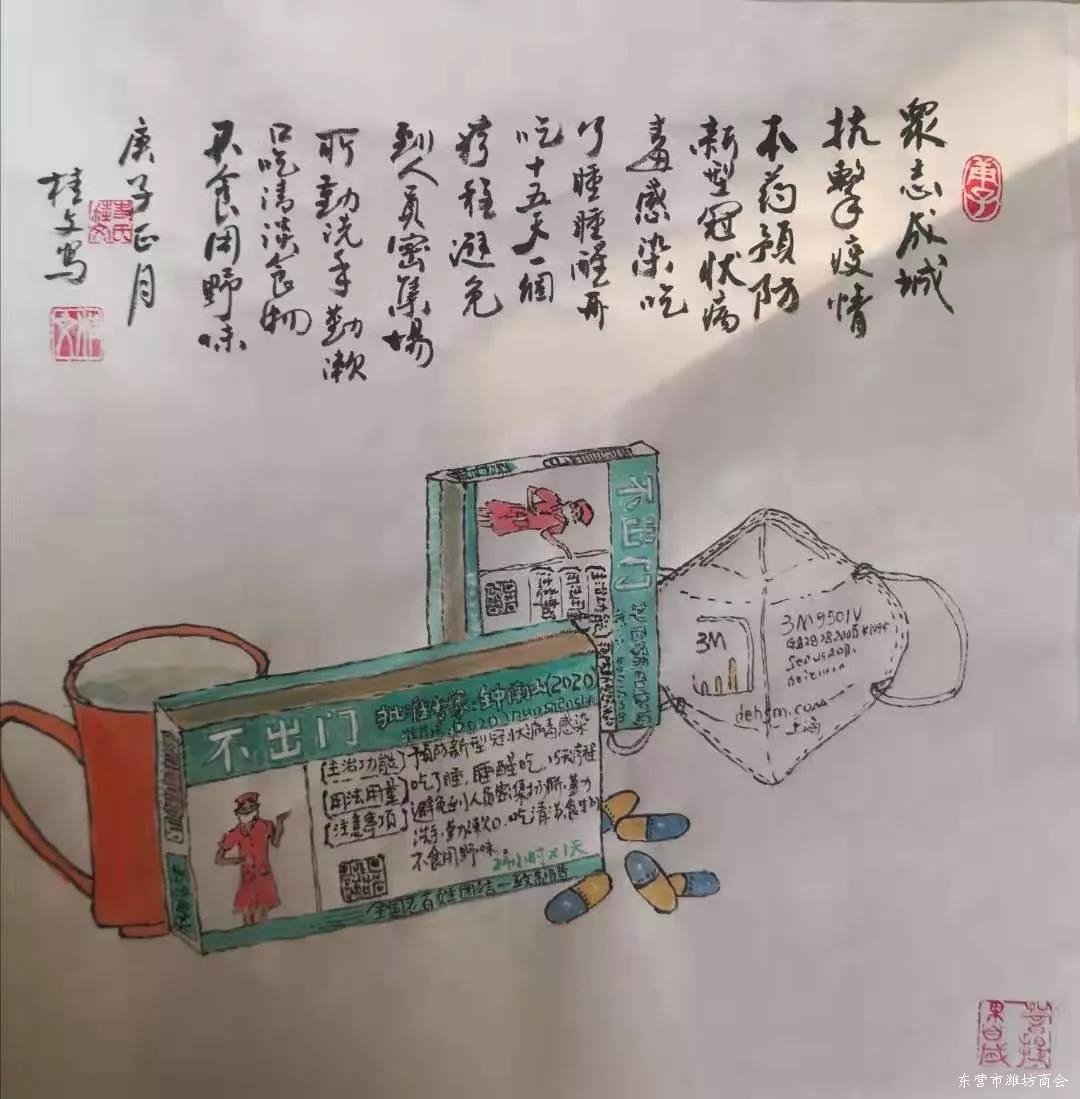 眾志成城
抗擊疫情
本药預防
新型冠状病
毒感染吃
了睡睡醒再
吃十五天一個
療程避免
到人員密集場
所勤洗手勤漱
口吃清淡食物
不食用野味
庚子正月
桂文写
庚子
不出门
主治功能
用法用量
注意事项
3M
3M9501V
不出门
批准专家:钟南山(2020)
[主治功能]预防新型冠状病毒感染
[用法用量]吃了睡,睡醒吃,15天疗程
[注意事项]避免到人员密集场所,勤
洗手,勤漱口,吃清淡食物
不食用野味。
24小时×1天
全国老百姓团结一致制售
东营市潍坊商会